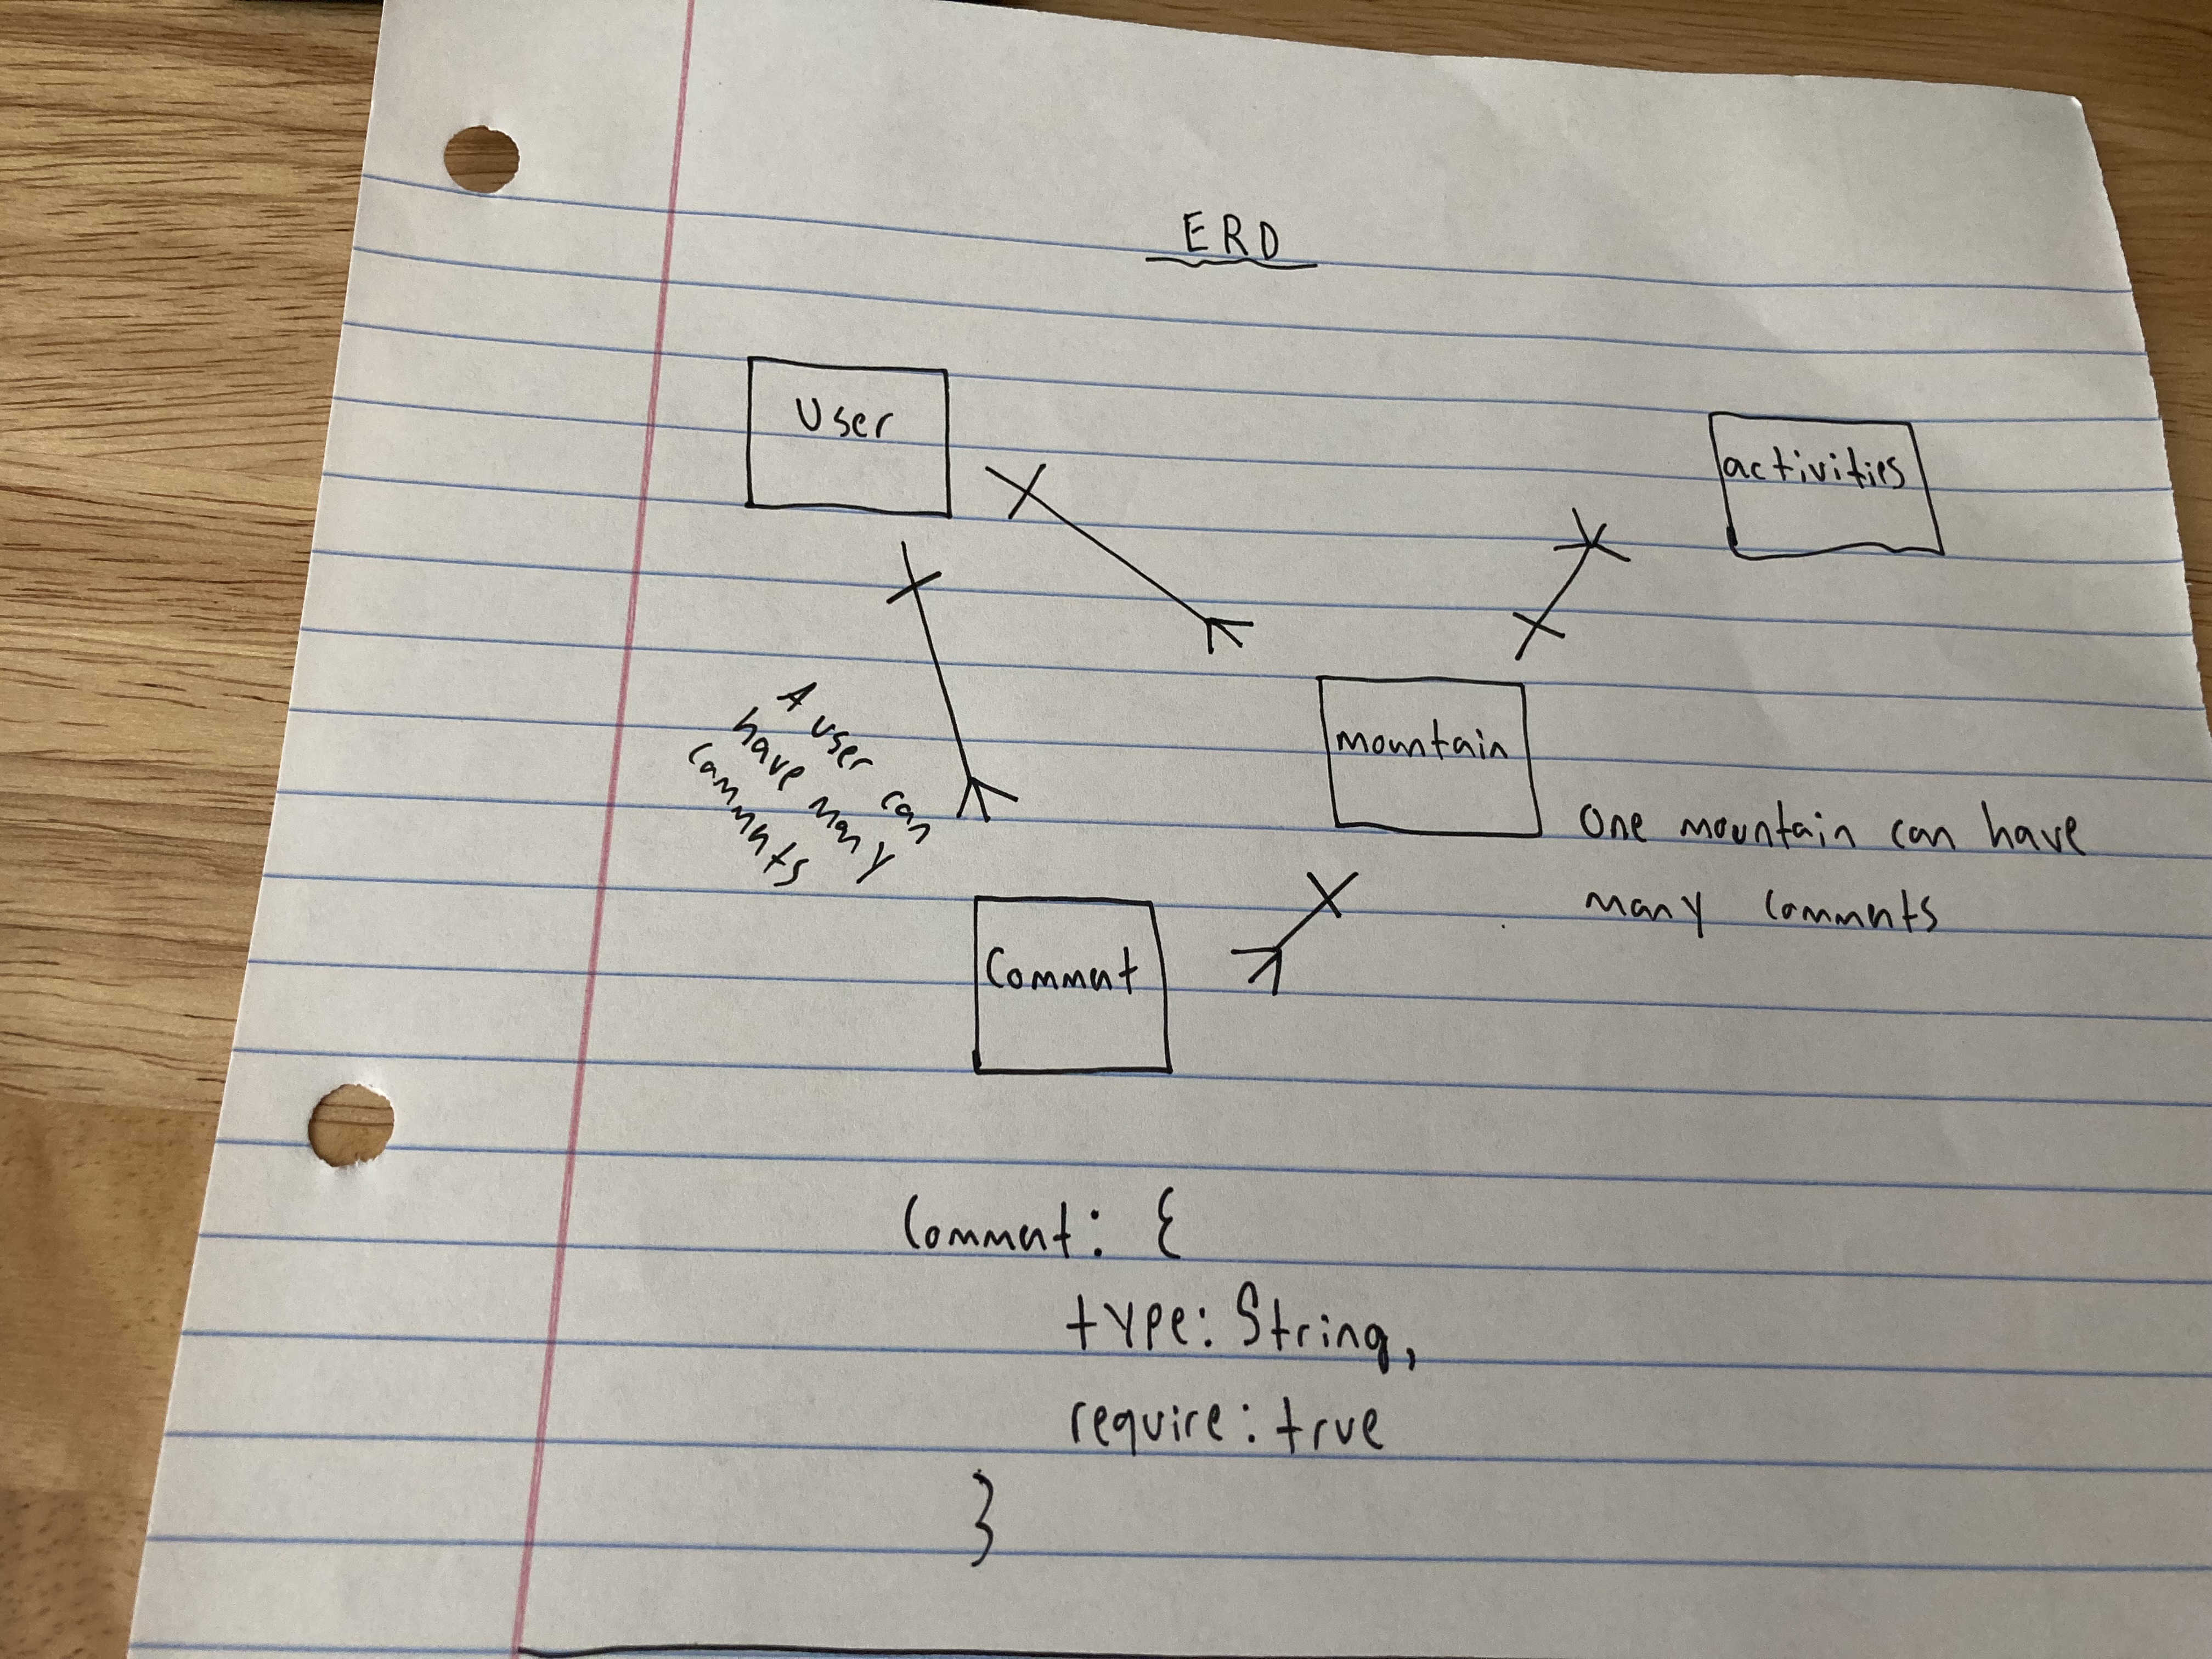 ERD
User
activities
mountain
A user can
have many
comments
Comment
One mountain can have
many comments
Comment: {
type: String,
require: true
}